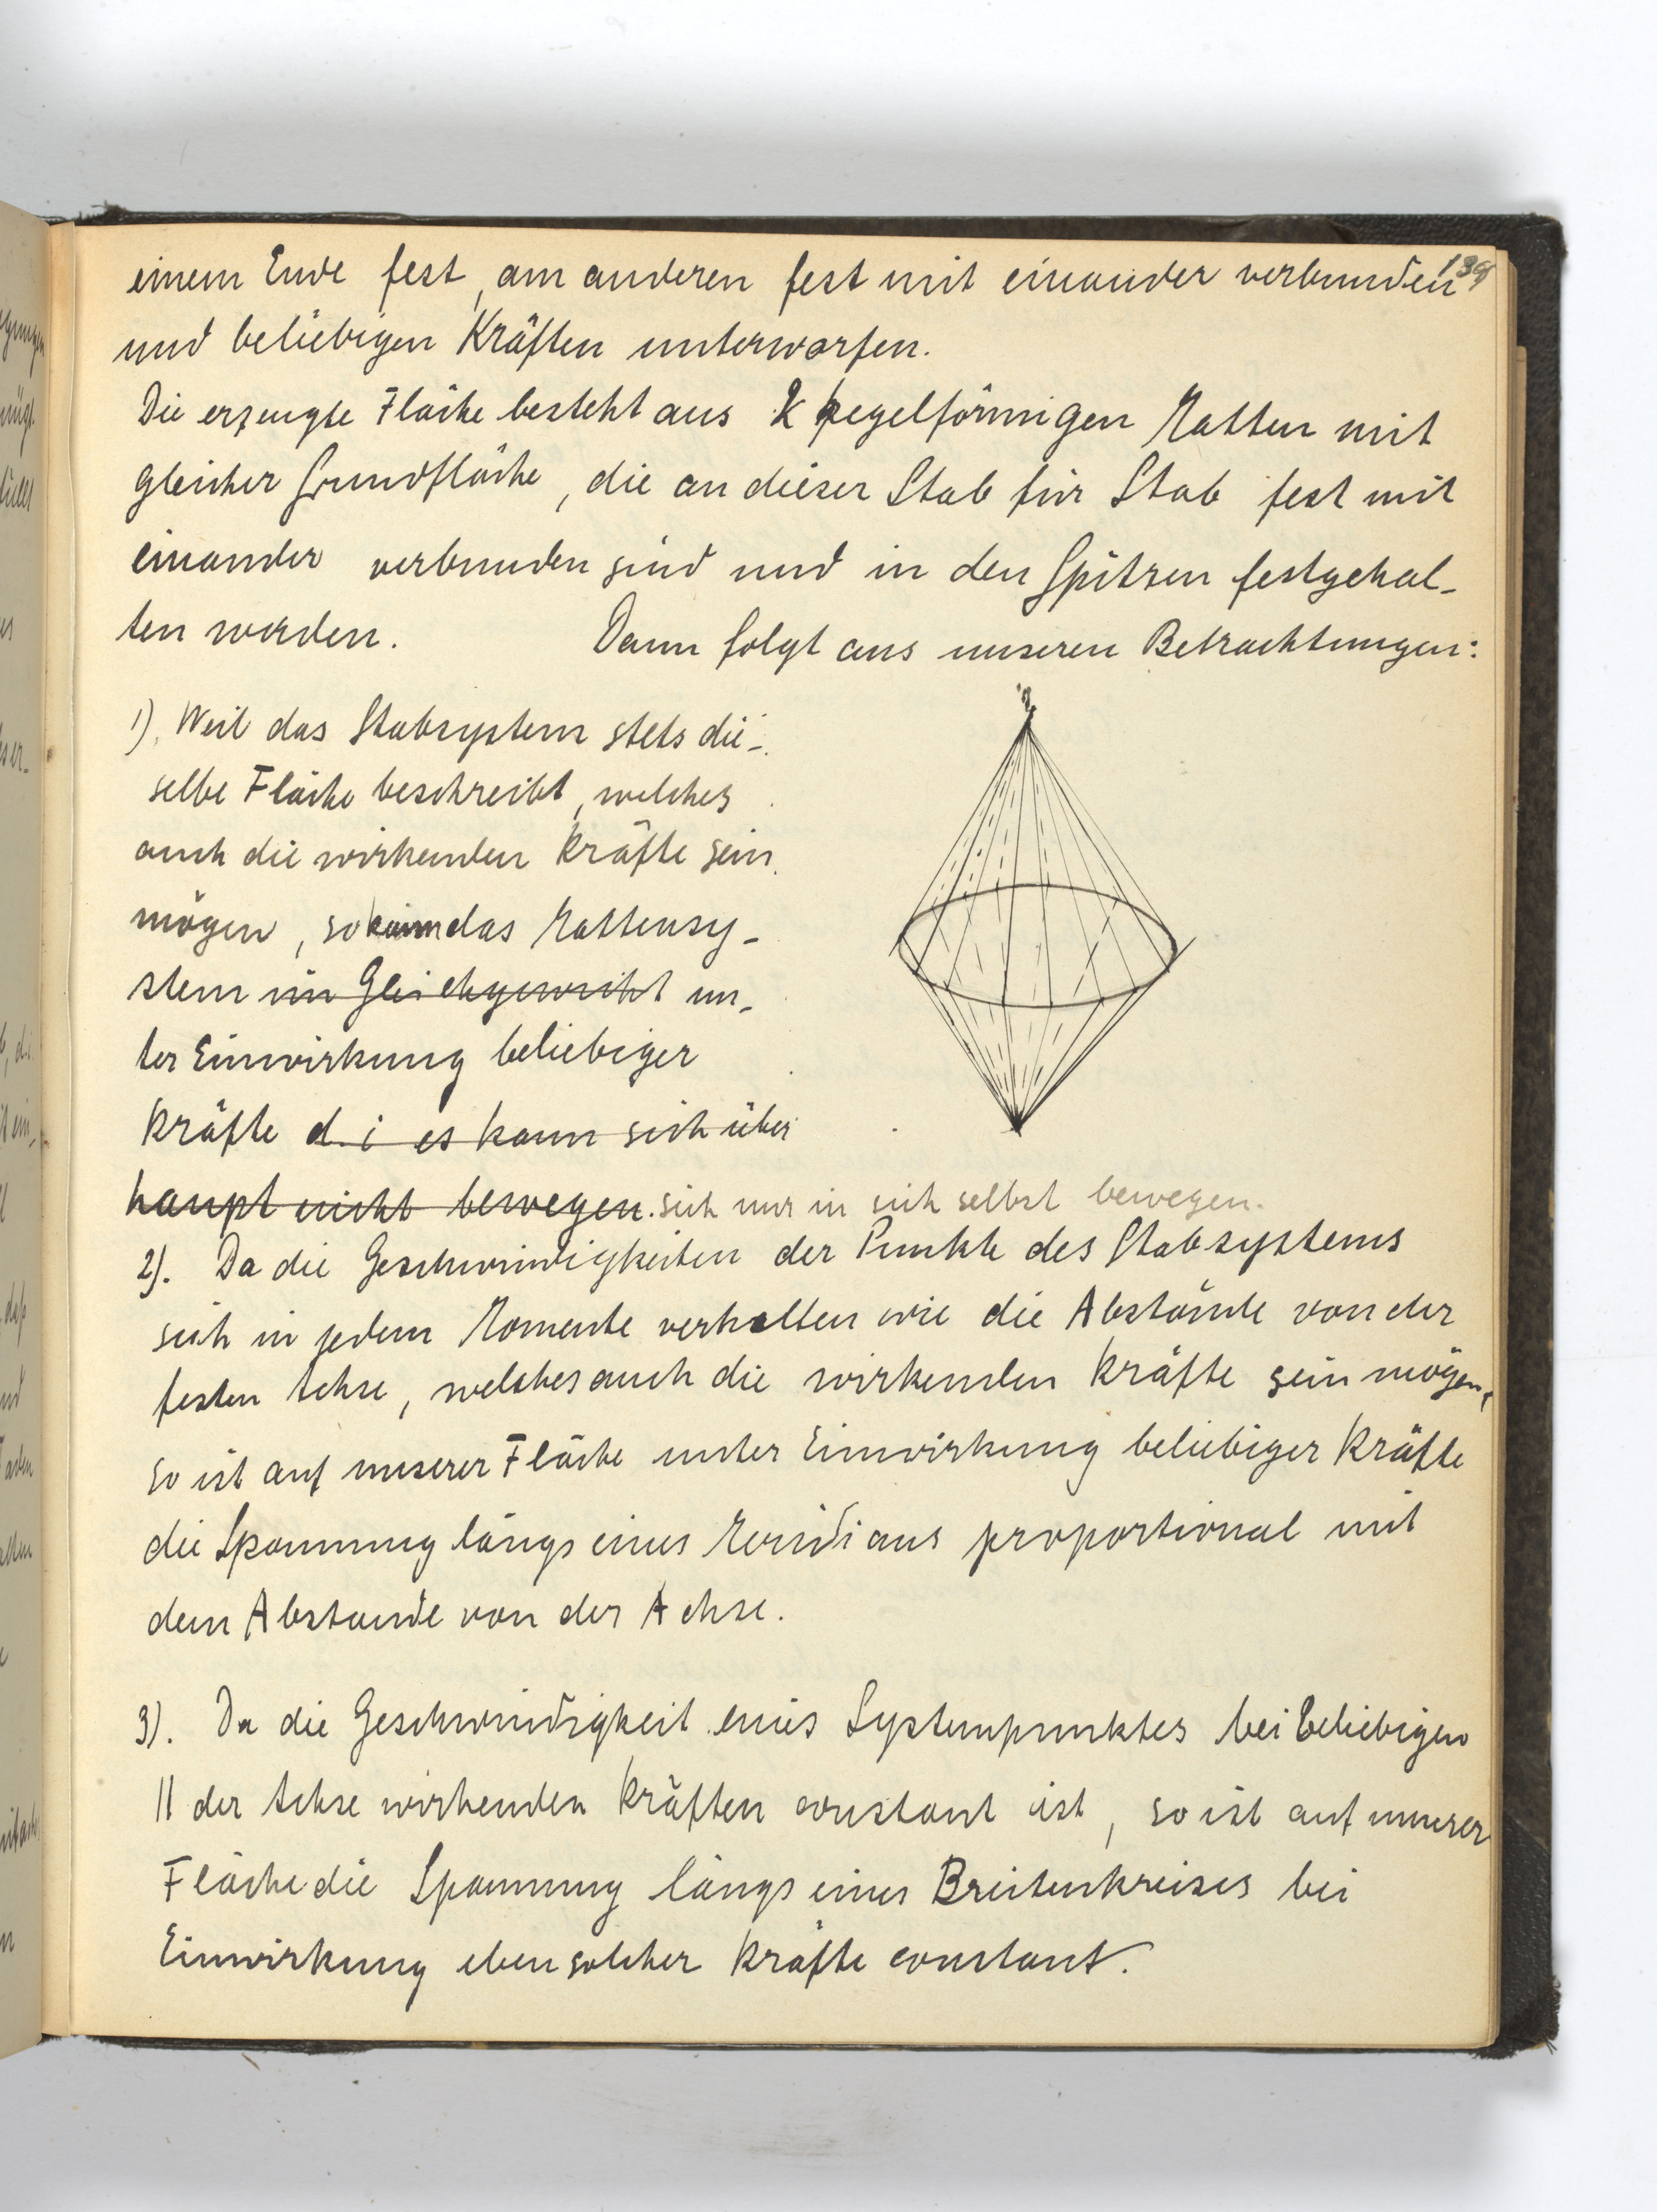 139
einem Ende fest, am anderen fest mit einander verbunden
und beliebigen Kräften unterworfen.
Die erzeugte Fläche besteht aus 2 kegelförmigen Matten mit
gleicher Grundfläche, die an dieser Stab für Stab fest mit
einander verbunden sind und in den Spitzen festgehal-
ten werden. Dann folgt aus unseren Betrachtungen:
1). Weil das Stabsystem stets die-
selbe Fläche beschreibt, welches
auch die wirkenden Kräfte sein
mögen, so kann das Mattensy-
stem im Gleichgewicht un-
ter Einwirkung beliebiger
Kräfte d. i es kann sich über
haupt nicht bewegen. sich nur in sich selbst bewegen.
2). Da die Geschwindigkeiten der Punkte des Stabsystems
sich in jedem Momente verhalten wie die Abstände von der
festen Achse, welches auch die wirkenden Kräfte sein mögen,
so ist auf unserer Fläche unter Einwirkung beliebiger Kräfte
die Spannung längs eines Meridians proportional mit
dem Abstande von der Achse.
3). Da die Geschwindigkeit eines Systempunktes bei beliebigen
|| der Achse wirkenden Kräften constant ist, so ist auf unserer
Fläche die Spannung längs eines Breitenkreises bei
Einwirkung eben solcher Kräfte constant.